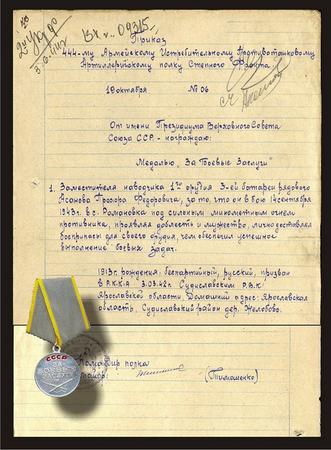 Вх. № 09315
Приказ
444-му Армейскому Истребительному Противотанковому
Артиллерийскому полку Степного Фронта
19 октября № 06
От имени Президиума Верховного Совета
Союза ССР - награждаю:
Медалью „За Боевые Заслуги"
1. Заместителя наводчика 1го орудия 3-ей батареи рядового
Федоровича, за то, что он в бою 14 сентября
1943 г. в с. Романовка под сильным минометным огнем
противника, проявляя доблесть и мужество, лично доставлял
боеприпасы для своего орудия, чем обеспечил успешное
выполнение боевых задач.
1913 г. рождения, беспартийный, русский, призван
в Р.К.К.А 3.03.42 г. Судиславским Р.В.К.
Ярославской области. Домашний адрес: Ярославская
область, Судиславский район дер. Желобово.
Командир полка
майор: (Тимошенко)
СССР
ЗА
БОЕВЫЕ
ЗАСЛУГИ